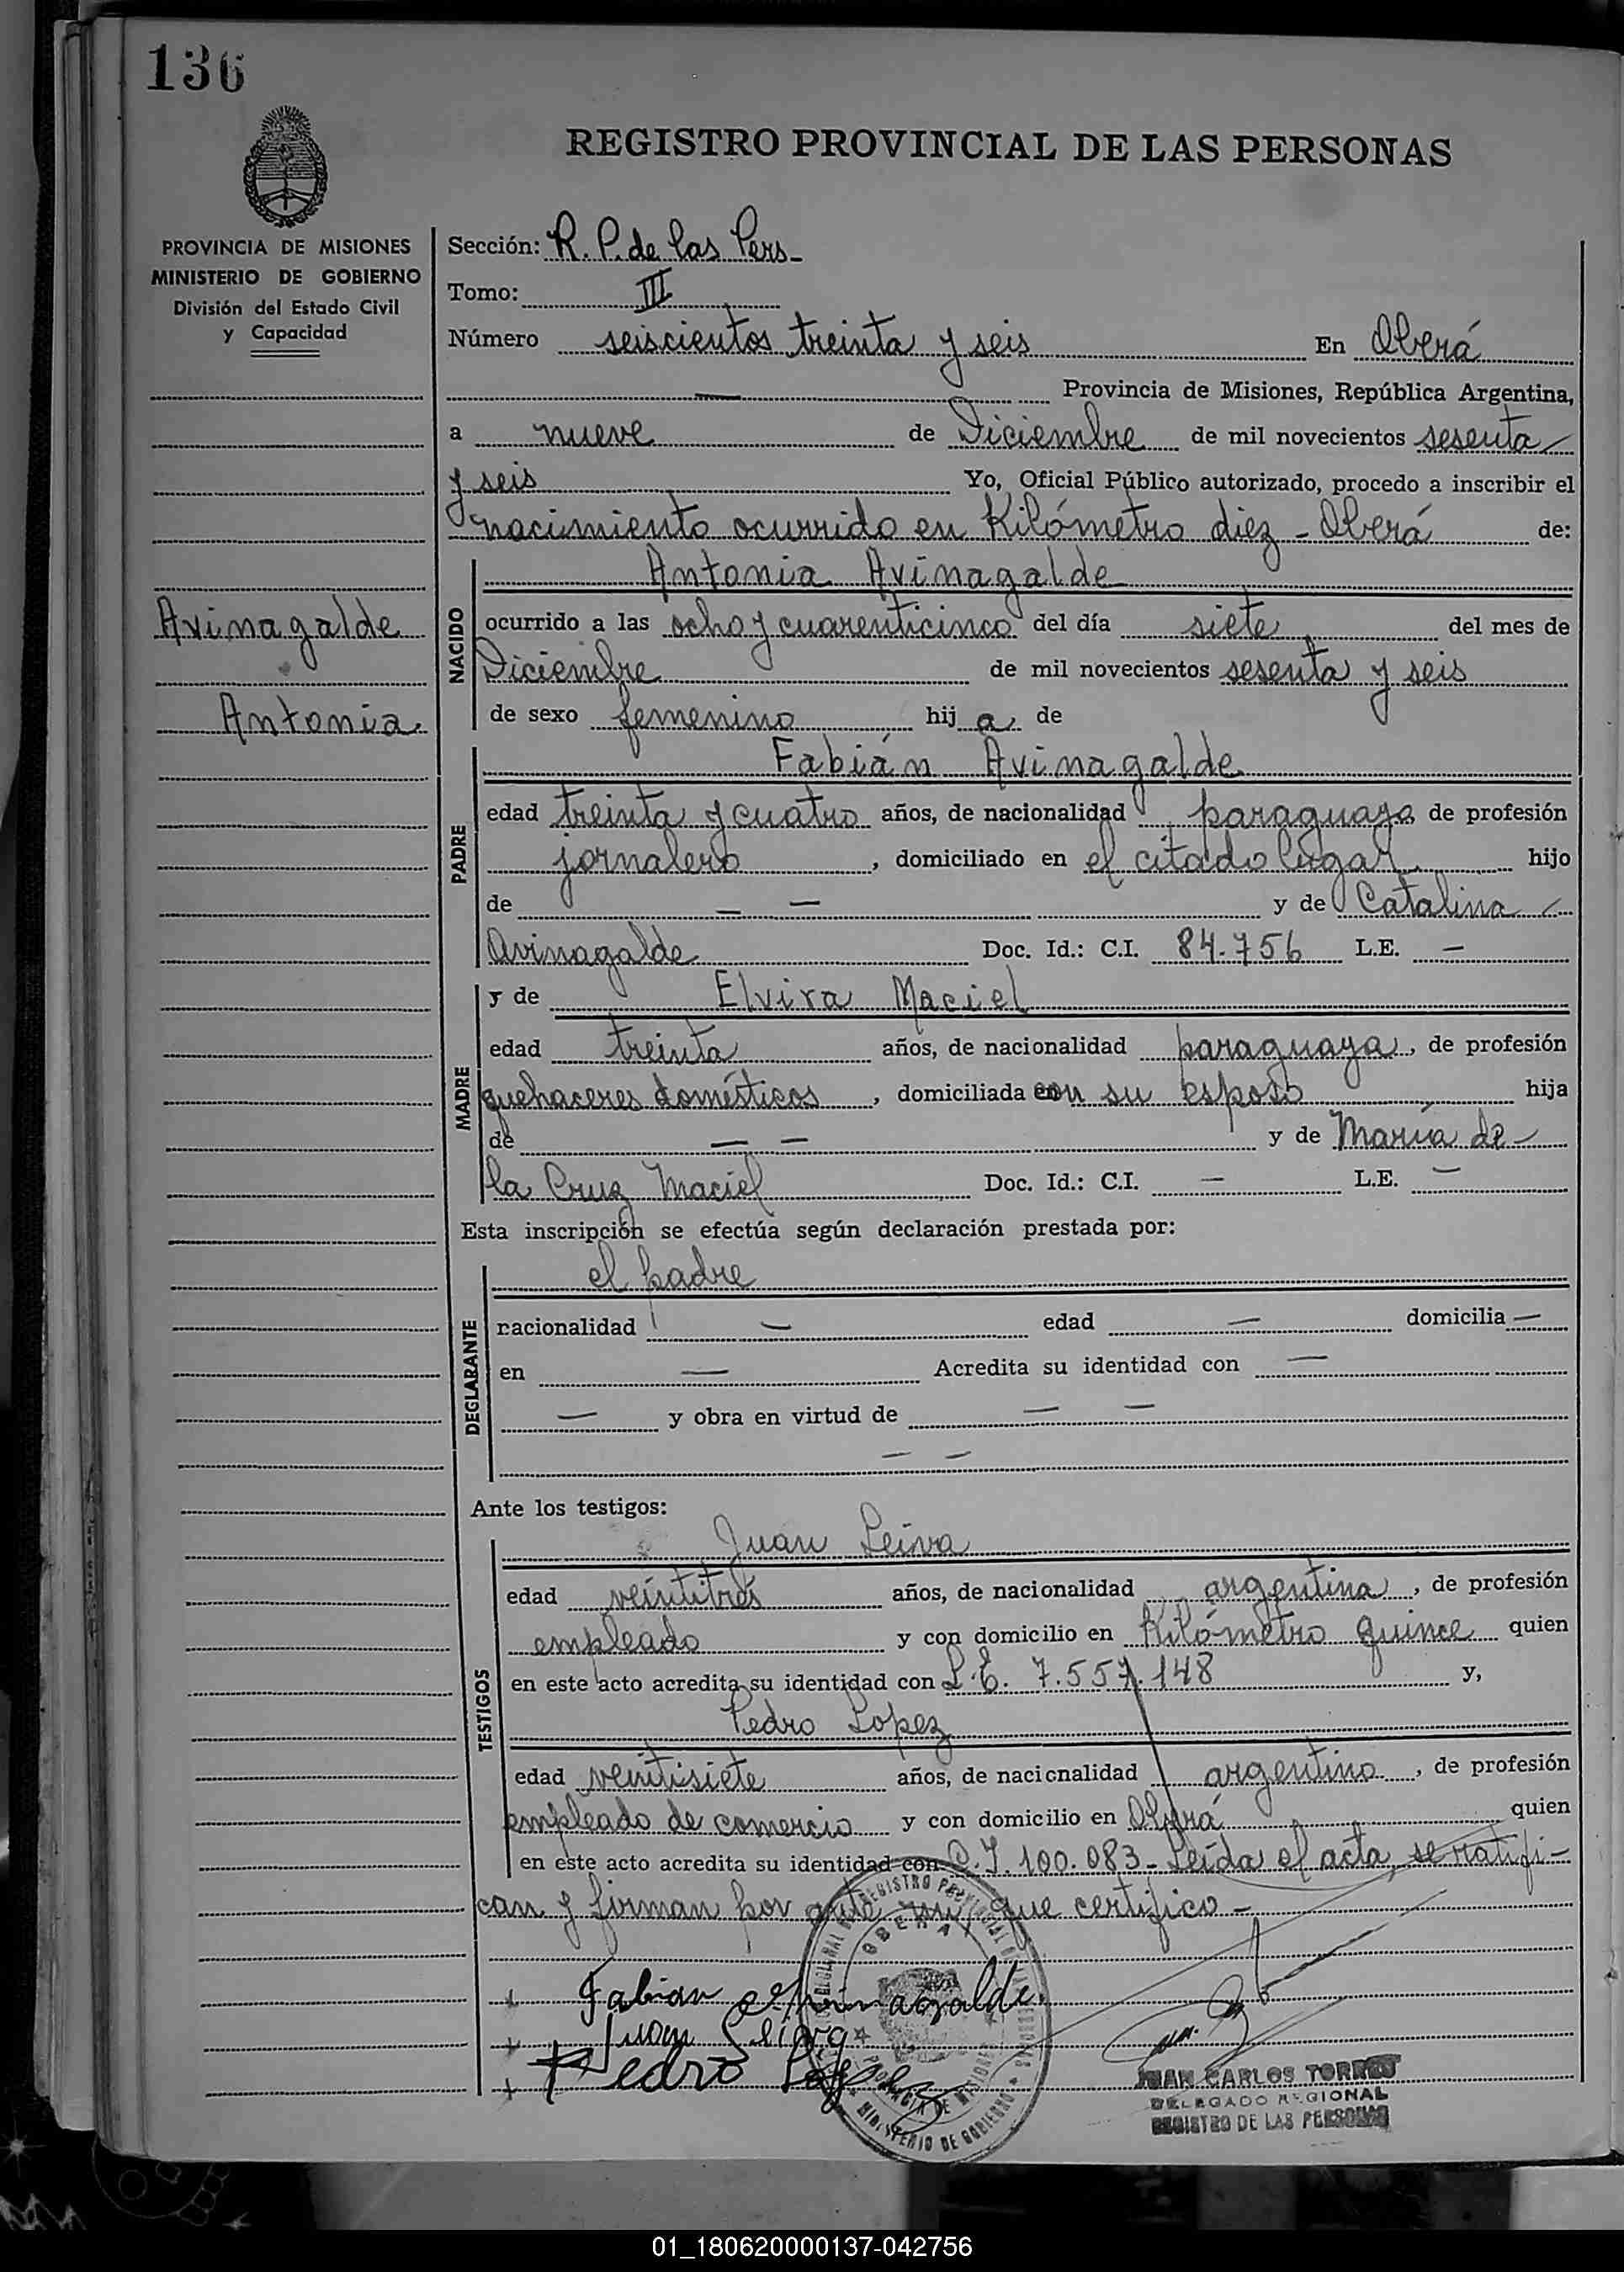 136
REGISTRO PROVINCIAL DE LAS PERSONAS
PROVINCIA DE MISIONES
MINISTERIO DE GOBIERNO
División del Estado Civil
y Capacidad
Avinagalde
Antonia
Sección: R. P. de las Pers-
Tomo: III
Número seiscientos treinta y seis En Oberá
— Provincia de Misiones, República Argentina,
a nueve de Diciembre de mil novecientos sesenta
y seis Yo, Oficial Público autorizado, procedo a inscribir el
nacimiento ocurrido en Kilómetro diez - Oberá de:
NACIDO
Antonia Avinagalde
ocurrido a las ocho y cuarenticinco del día siete del mes de
Diciembre de mil novecientos sesenta y seis
de sexo femenino hij a de
PADRE
Fabián Avinagalde
edad treinta y cuatro años, de nacionalidad paraguaya de profesión
jornalero, domiciliado en el citado lugar hijo
de — — y de Catalina
Avinagalde Doc. Id.: C.I. 84.756 L.E. —
MADRE
y de Elvira Maciel
edad treinta años, de nacionalidad paraguaya, de profesión
quehaceres domésticos, domiciliada con su esposo hija
de — — y de María de
la Cruz Maciel Doc. Id.: C.I. — L.E. —
Esta inscripción se efectúa según declaración prestada por:
DECLARANTE
el padre
nacionalidad — edad — domicilia —
en — Acredita su identidad con —
— y obra en virtud de — —
— —
Ante los testigos:
TESTIGOS
Juan Leiva
edad veintitrés años, de nacionalidad argentina, de profesión
empleado y con domicilio en Kilómetro quince quien
en este acto acredita su identidad con L.E. 7.557.148 y,
Pedro Lopez
edad veintisiete años, de nacionalidad argentino, de profesión
empleado de comercio y con domicilio en Oberá quien
en este acto acredita su identidad con C.I. 100.083- Leída el acta, se ratifi-
can y firman por ante mí, que certifico -
Fabian Avinagalde
Juan Leiva
Pedro Lopez
OBERA
MINISTERIO DE GOBIERNO
JUAN CARLOS TORRES
DELEGADO REGIONAL
REGISTRO DE LAS PERSONAS
01_180620000137-042756